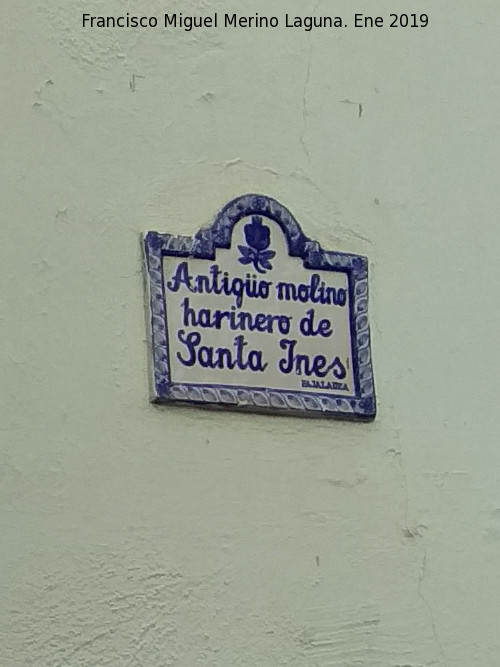 Francisco Miguel Merino Laguna. Ene 2019
Antigüo molino
harinero de
Santa Ines
FAJALAUZA